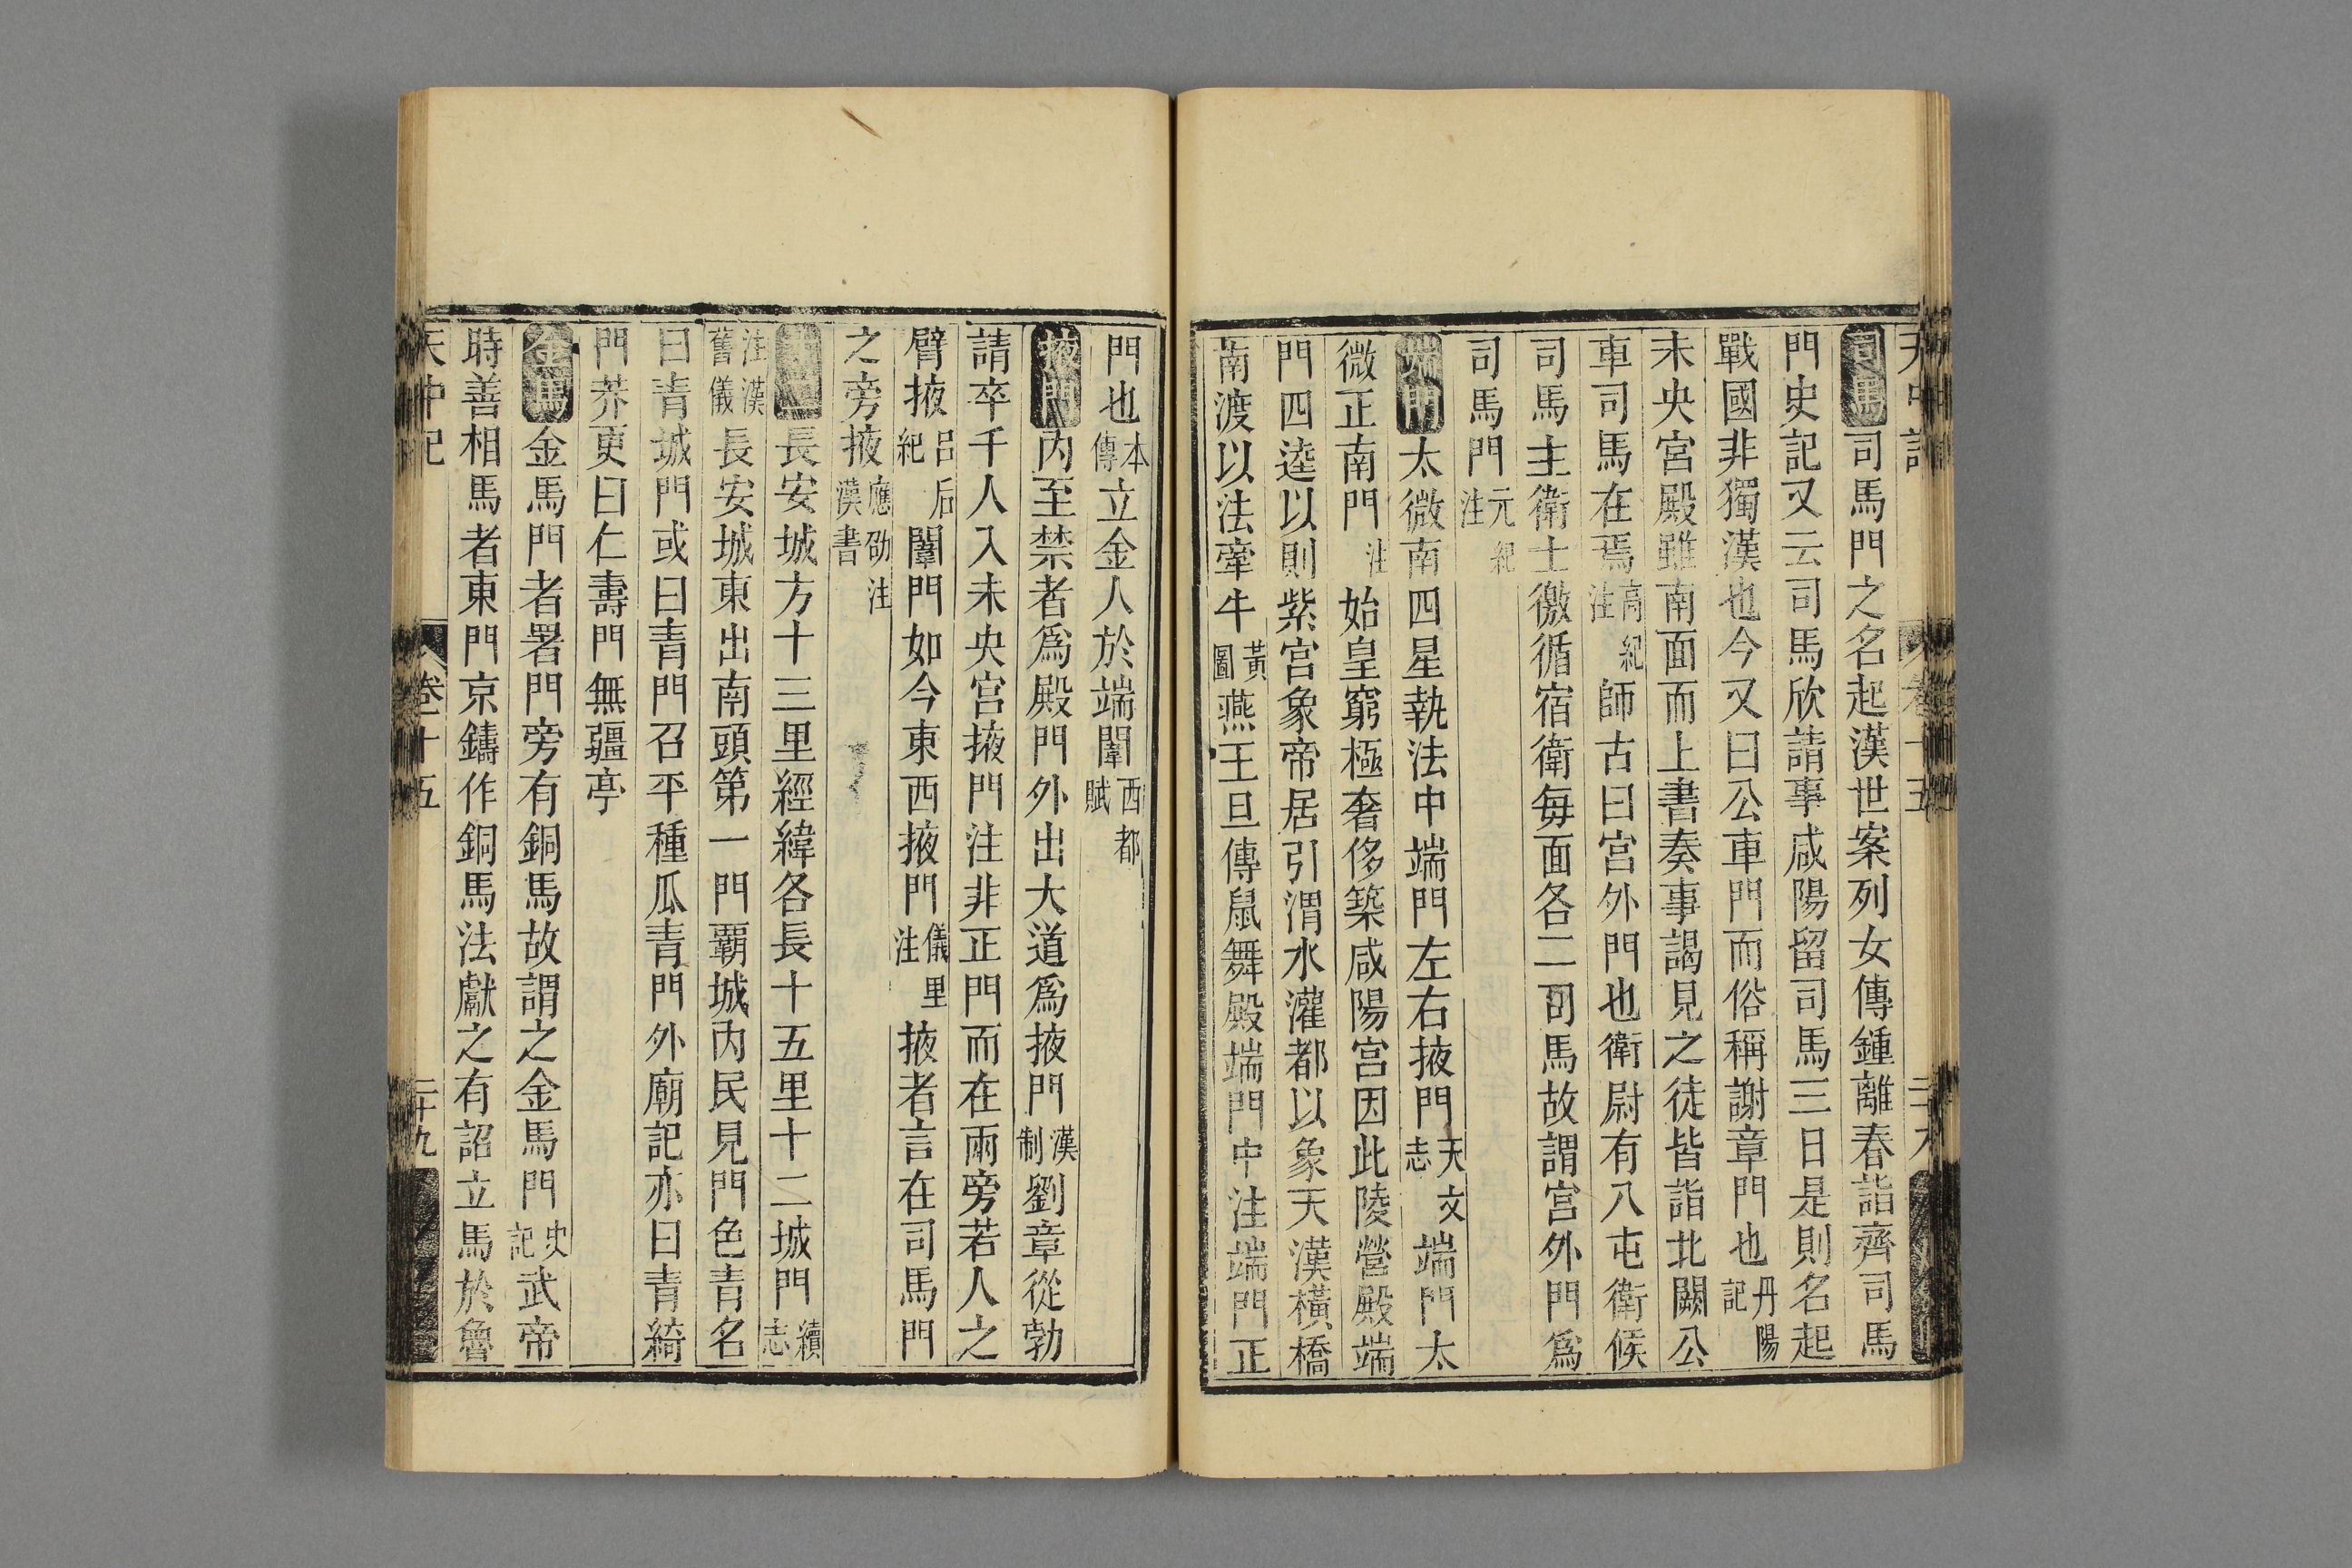 天中記 卷十五
司馬司馬門之名起漢世案列女傳鍾離春詣齊司馬
門史記又云司馬欣請事咸陽留司馬三日是則名起
戰國非獨漢也今又曰公車門而俗稱謝章門也丹陽記
未央宮殿雖南面而上書奏事謁見之徒皆詣北闕公
車司馬在焉高紀注師古曰宮外門也衛尉有八屯衛候
司馬主衛士徼循宿衛每面各二司馬故謂宮外門爲
司馬門元紀注
端門太微南四星執法中端門左右掖門天文志端門太
微正南門注始皇窮極奢侈築咸陽宮因此陵營殿端
門四逵以則紫宮象帝居引渭水灌都以象天漢橫橋
南渡以法牽牛黃圖燕王旦傳鼠舞殿端門中注端門正
門也本傳立金人於端闈西都賦
掖門內至禁者爲殿門外出大道爲掖門漢制劉章從勃
請卒千人入未央宮掖門注非正門而在兩旁若人之
臂掖呂后紀闈門如今東西掖門儀里注掖者言在司馬門
之旁掖應劭注漢書
長安城方十三里經緯各長十五里十二城門續志
注漢舊儀長安城東出南頭第一門霸城內民見門色青名
曰青城門或曰青門召平種瓜青門外廟記亦曰青綺
門莽更曰仁壽門無疆亭
金馬金馬門者署門旁有銅馬故謂之金馬門史記武帝
時善相馬者東門京鑄作銅馬法獻之有詔立馬於魯
天中記 卷十五 二十九